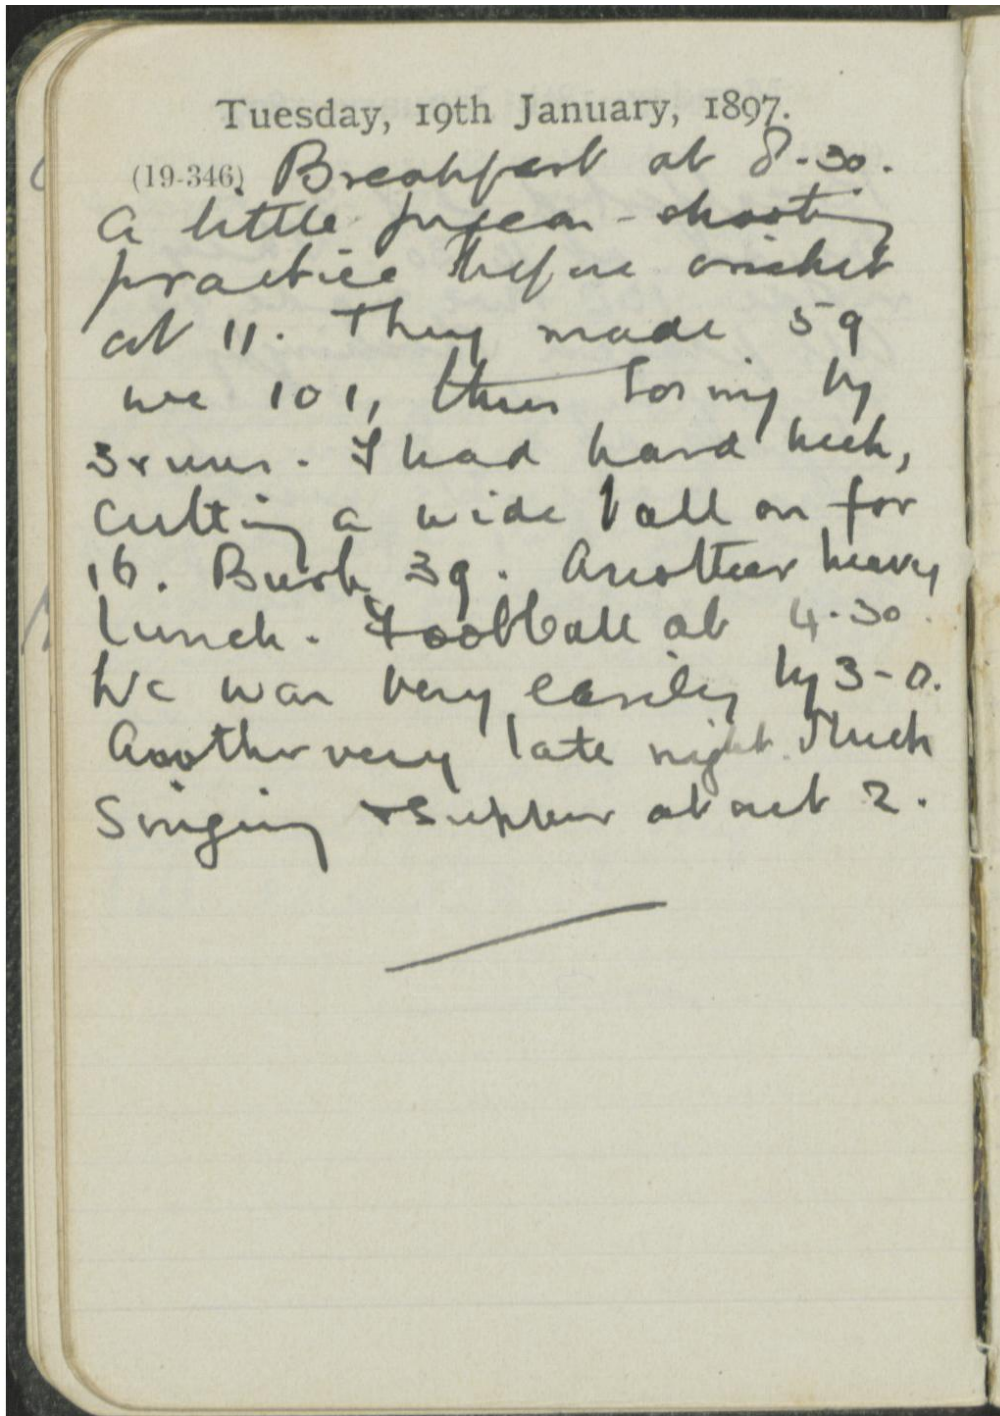 Tuesday, 19th January, 1897.
(19-346) Breakfast at 8.30.
A little pigeon-shooting
practice before cricket
at 11. They made 59
we 101, thus losing by
3 runs. I had hard luck,
cutting a wide ball on for
16. Bush 39. Another heavy
lunch. Football at 4.30.
We won very easily by 3-0.
Another very late night. Much
Singing & Supper at about 2.